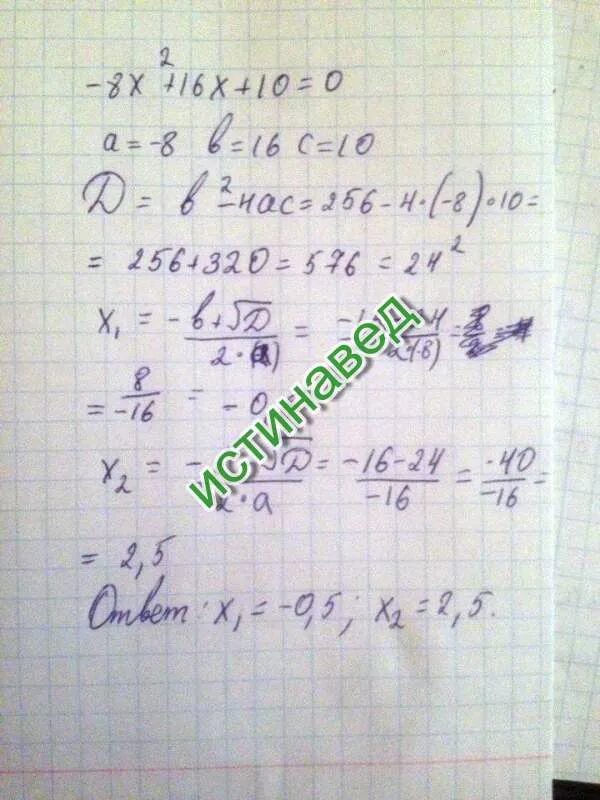 -8x²+16x+10=0
a=-8 в=16 c=10
D = в²-4ac=256-4·(-8)·10=
= 256+320=576=24²
x₁ = -в+√D / 2· =
= 8/-16 = -0
x₂ = √D / 2·a = -16-24 / -16 = -40/-16 =
= 2,5
Ответ: x₁=-0,5; x₂=2,5.
истинавед